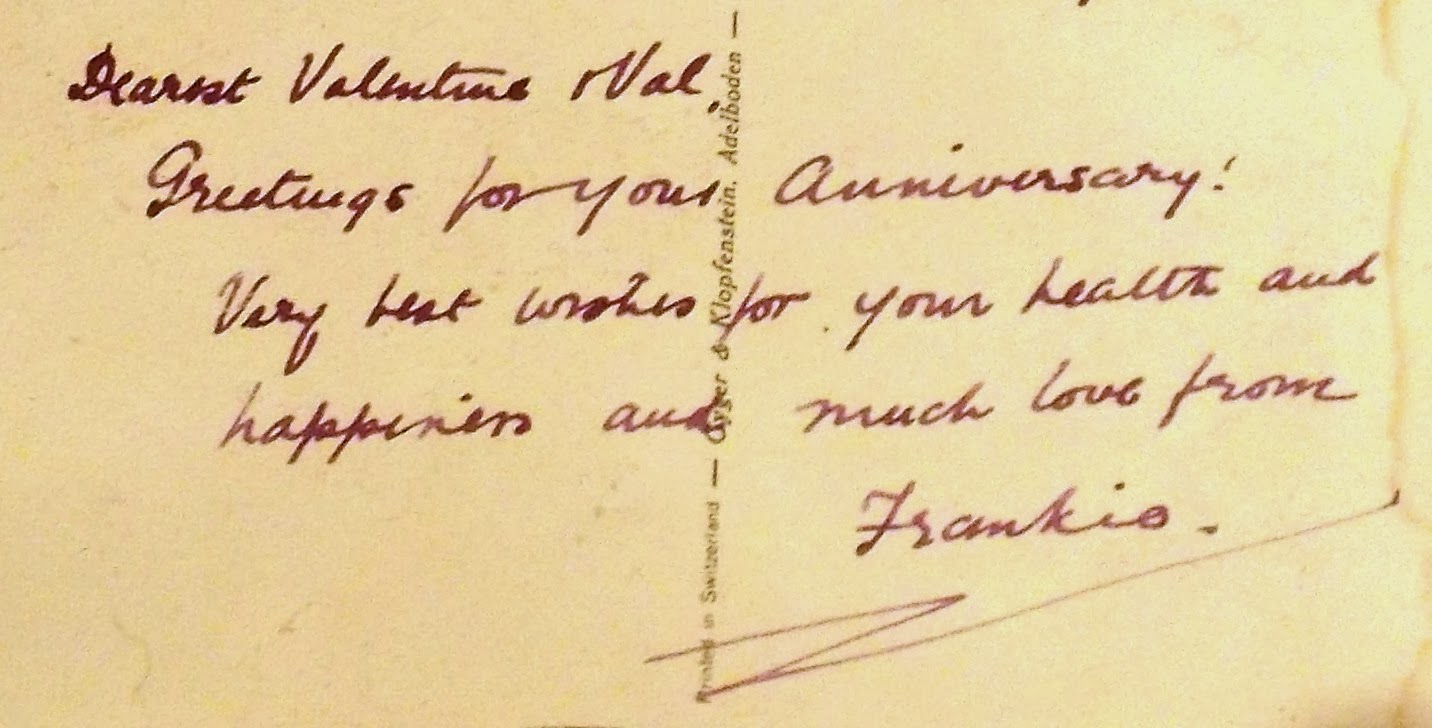 Dearest Valentine & Val,
Greetings for your Anniversary!
Very best wishes for your health and
happiness and much love from
Frankie.
Printed in Switzerland — Gyger & Klopfenstein, Adelboden —